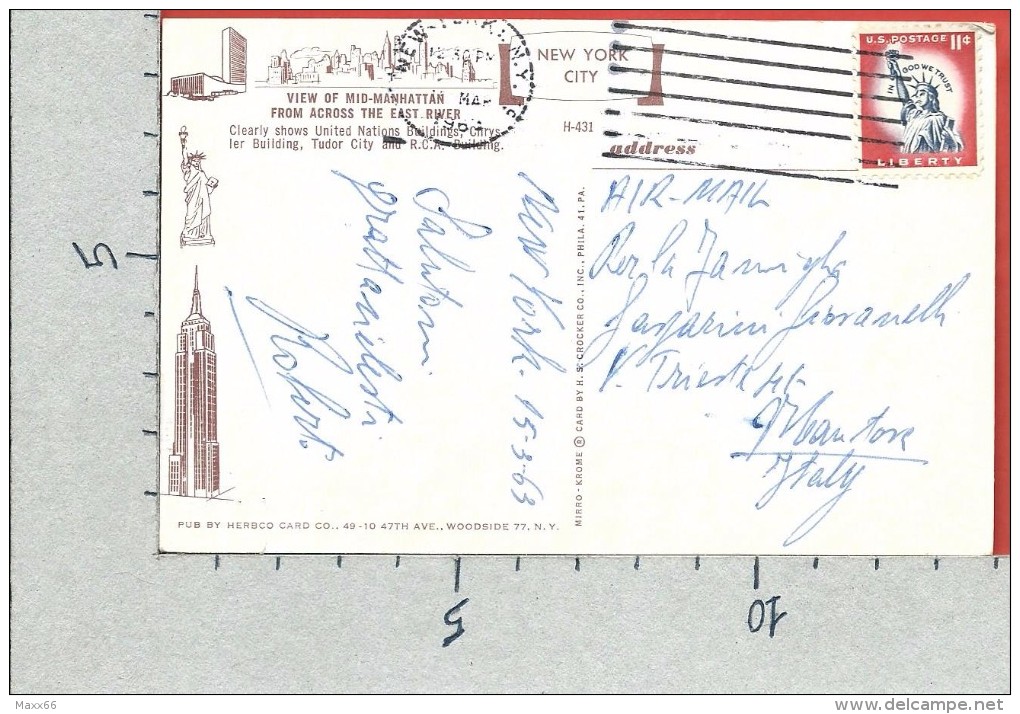 NEW YORK, N.Y.
MAR
NEW YORK
CITY
U.S. POSTAGE 11¢
IN GOD WE TRUST
LIBERTY
VIEW OF MID-MANHATTAN
FROM ACROSS THE EAST RIVER
Clearly shows United Nations Buildings, Chrys-
ler Building, Tudor City and R.C.A. Building.
H-431
address
New York. 15-3-63
Salutoni
Roberto
PUB BY HERBCO CARD CO., 49-10 47TH AVE., WOODSIDE 77, N.Y.
MIRRO-KROME ® CARD BY H. S. CROCKER CO., INC., PHILA. 41, PA.
AIR-MAIL
Gasparini Giovanelli
V. Trieste
Mantova
Italy
5
5
10
Maxx66
delcampe.net